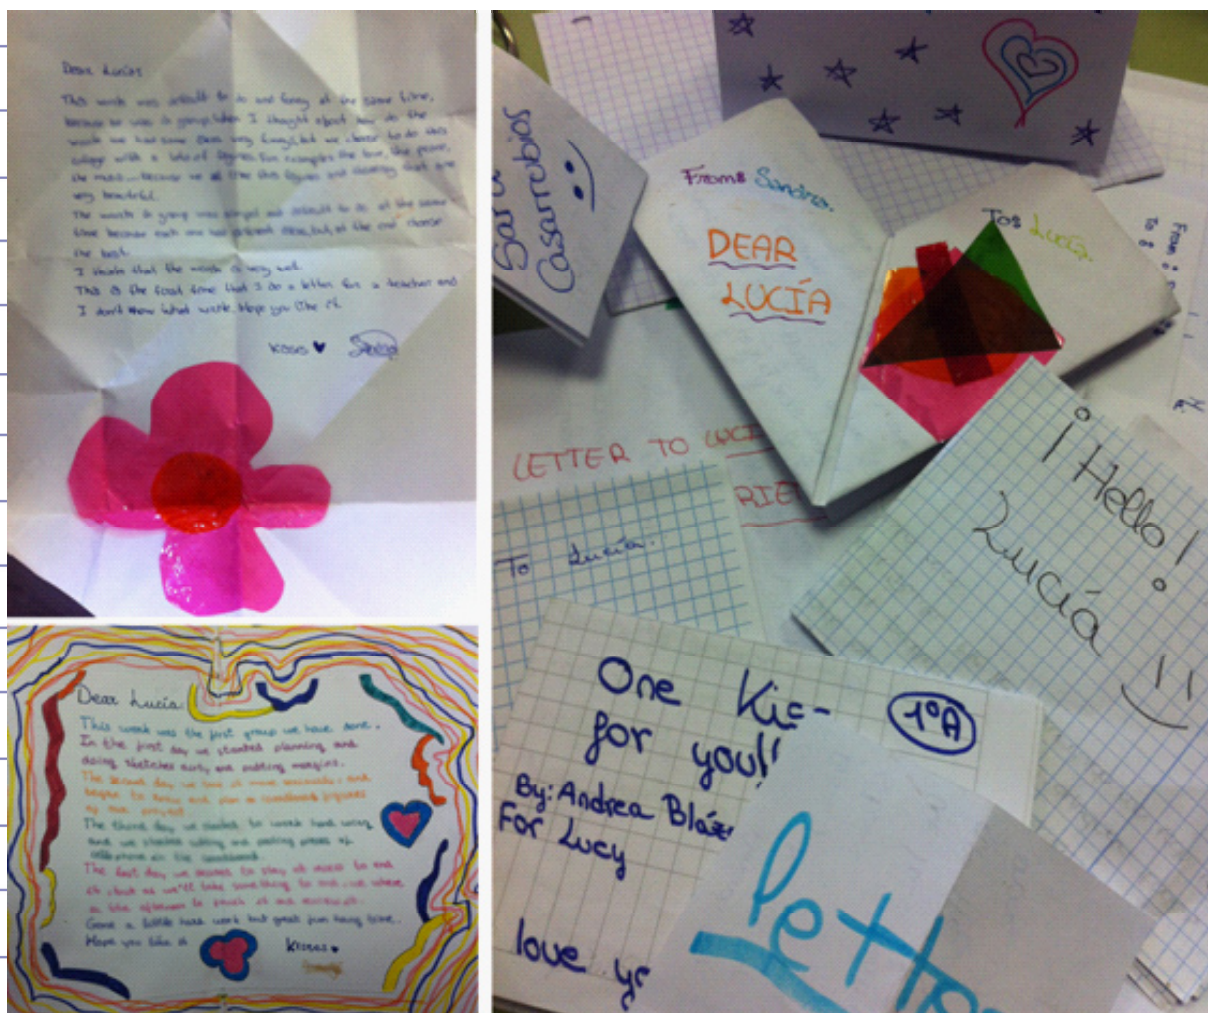 Dear Lucía:
This work was difficult to do and funny at the same time,
because he was in group. When I thought about how do the
work we had some ideas very funny, but we choose to do this
collage with a lots of figures. For example: the love, the peace,
the music... because we all like this figures and
very beautiful.
The work in group was simpel and difficult to do at the same
time because each one had different ideas, but, at the end choose
the best.
I think that the work is very well.
This is the first time that I do a letter for a teacher and
I don't know what write. Hope you like it.
Kisses ♥ Sandra
Dear Lucía:
This week was the first group we have done.
In the first day we started planning and
doing sketches and making margins.
The second day we more seriously and
began to draw and cardboard figures
of our project
The third day we started to work hard using
and we started cutting and pasting pieces of
cellophane in the cardboard.
The last day we to stay at recess to end
it, but as we'll take something to eat, we
in the afternoon to finish it
a little hard work but great fun having time.
Hope you like it
Kisses ♥
Sara
Casarrubios
:)
From: Sandra.
DEAR
LUCÍA
To: Lucía.
From:
To:
LETTER TO LUCI
RIE
To Lucía.
¡Hello!
Lucía
One Kis-
for you!!
1ºA
By: Andrea Bláz
For Lucy
love yo
lette